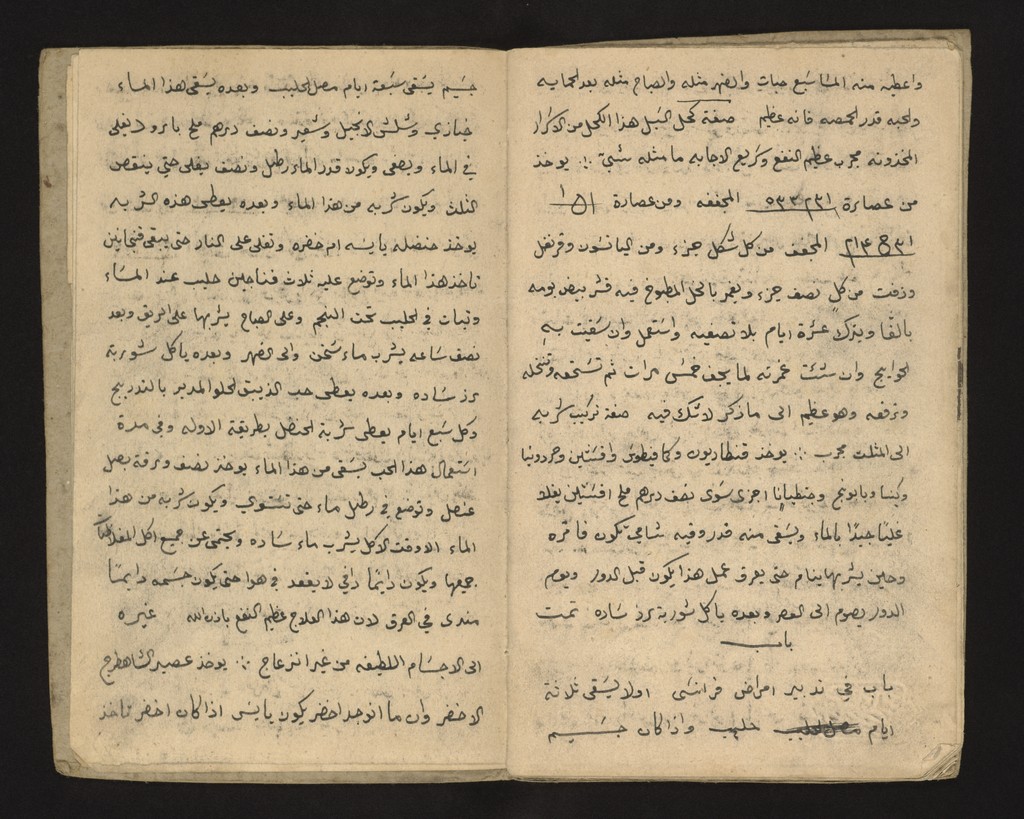 واعطيه منه المسا سبع حبات والضهر مثله والصباح مثله بعد الحمايه
والحبه قدر الحمصه فانه عظيم صفة كحل السبل هذا الكحل من الاسرار
المخزونه مجرب عظيم النفع وسريع الاجابه ما مثله شي يوخذ
من عصارة المجففه ومن عصارة
المجفف من كل شكل جزء ومن اليانسون وقرنفل
وزفت من كل نصف جزء ويغمر بالخل المطبوخ فيه قشر بيض يومه
بالقا ويترك عشرة ايام بلا تصفيه واستعمل وان سقيت به
الحوايج وان شئت غمرته لما يجف خمس مرات ثم تسحقه وتنخله
وترفعه وهو عظيم الى ما ذكر لا شك فيه صفة تركيب شربه
الى المثلث مجرب يوخذ قنطاريون وكمافيطوس وافسنتين
وبابونج وجنطيانا اجزى سوى نصف درهم ملح افسنتين يغلا
غليانا جيدا بالماء ويسقى منه قدر وقيه شامي تكون فاتره
وحين يشربها ينام حتى يعرق عمل هذا يكون قبل الدور ويوم
الدور يصوم الى العصر وبعده ياكل شوربة رز ساده تمت
باب
باب في تدبير امراض فرانسى اولا يسقى ثلاثة
ايام حليب واذا كان جسيم
جسيم يسقى سبعة ايام مصل الحليب وبعده يسقى هذا الماء
خبازي وشلش الانجيل وشعير ونصف درهم ملح بارود يغلى
في الماء ويصفى ويكون قدر الماء رطل ونصف يغلى حتى ينقص
الثلث ويكون شربه من هذا الماء وبعده يعطى هذه الشربه
يوخذ حنضله يابسه ام خضره وتغلى على النار حتى يبقى فنجانين
تاخذ هذا الماء وتوضع عليه ثلاث فناجين حليب عند المساء
وتبات في الحليب تحت النجم وعلى الصباح يشربها على الريق وبعد
نصف ساعه يشرب ماء سخن والى الضهر وبعده ياكل شوربة
رز ساده وبعده يعطى حب الذيبق الحلو المدبر بالتدريج
وكل سبع ايام يعطى شربة الحنظل بطريقة الاوله وفي مدة
استعمال هذا الحب يسقى من هذا الماء يوخذ نصف ورقة بصل
عنصل وتوضع في رطل ماء حتى تستوي ويكون شربه من هذا
الماء الا وقت الاكل يشرب ماء ساده ويحتمى عن جميع اكل
جميعها ويكون دائما دافي لا يقعد في هوا حتى يكون جسمه دايما
مندى في العرق لان هذا العلاج عظيم النفع باذن الله غيره
الى الاجسام اللطيفه من غير انزعاج يوخذ عصير الشاهطرج
الاخضر وان ما انوجد اخضر يكون يابس اذا كان اخضر تاخذ